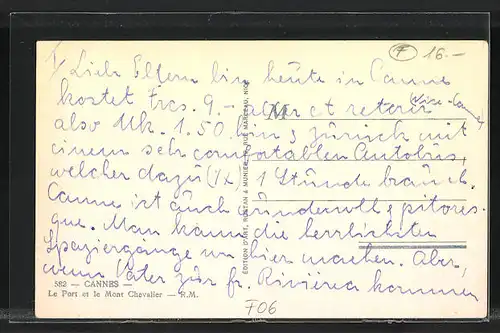 F 16.-
1/ Lieb Eltern bin heute in Cannes
kostet Frcs. 9.- aller et retour (Nice-Cannes)
also Mk. 1.50 hin & zurück mit
einem sehr comfortablen Autobus,
welcher dazu 1 Stunde brauch.
Cannes ist auch wundervoll & pitores-
que. Man kann die herrlichsten
Spaziergänge von hier machen. Aber,
wenn Vater zur fr. Riviera kommen
M
ÉDITION D'ART, ROSTAN & MUNIER, RUE MARCEAU, NICE
582 — CANNES —
Le Port et le Mont Chevalier — R.M.
F06